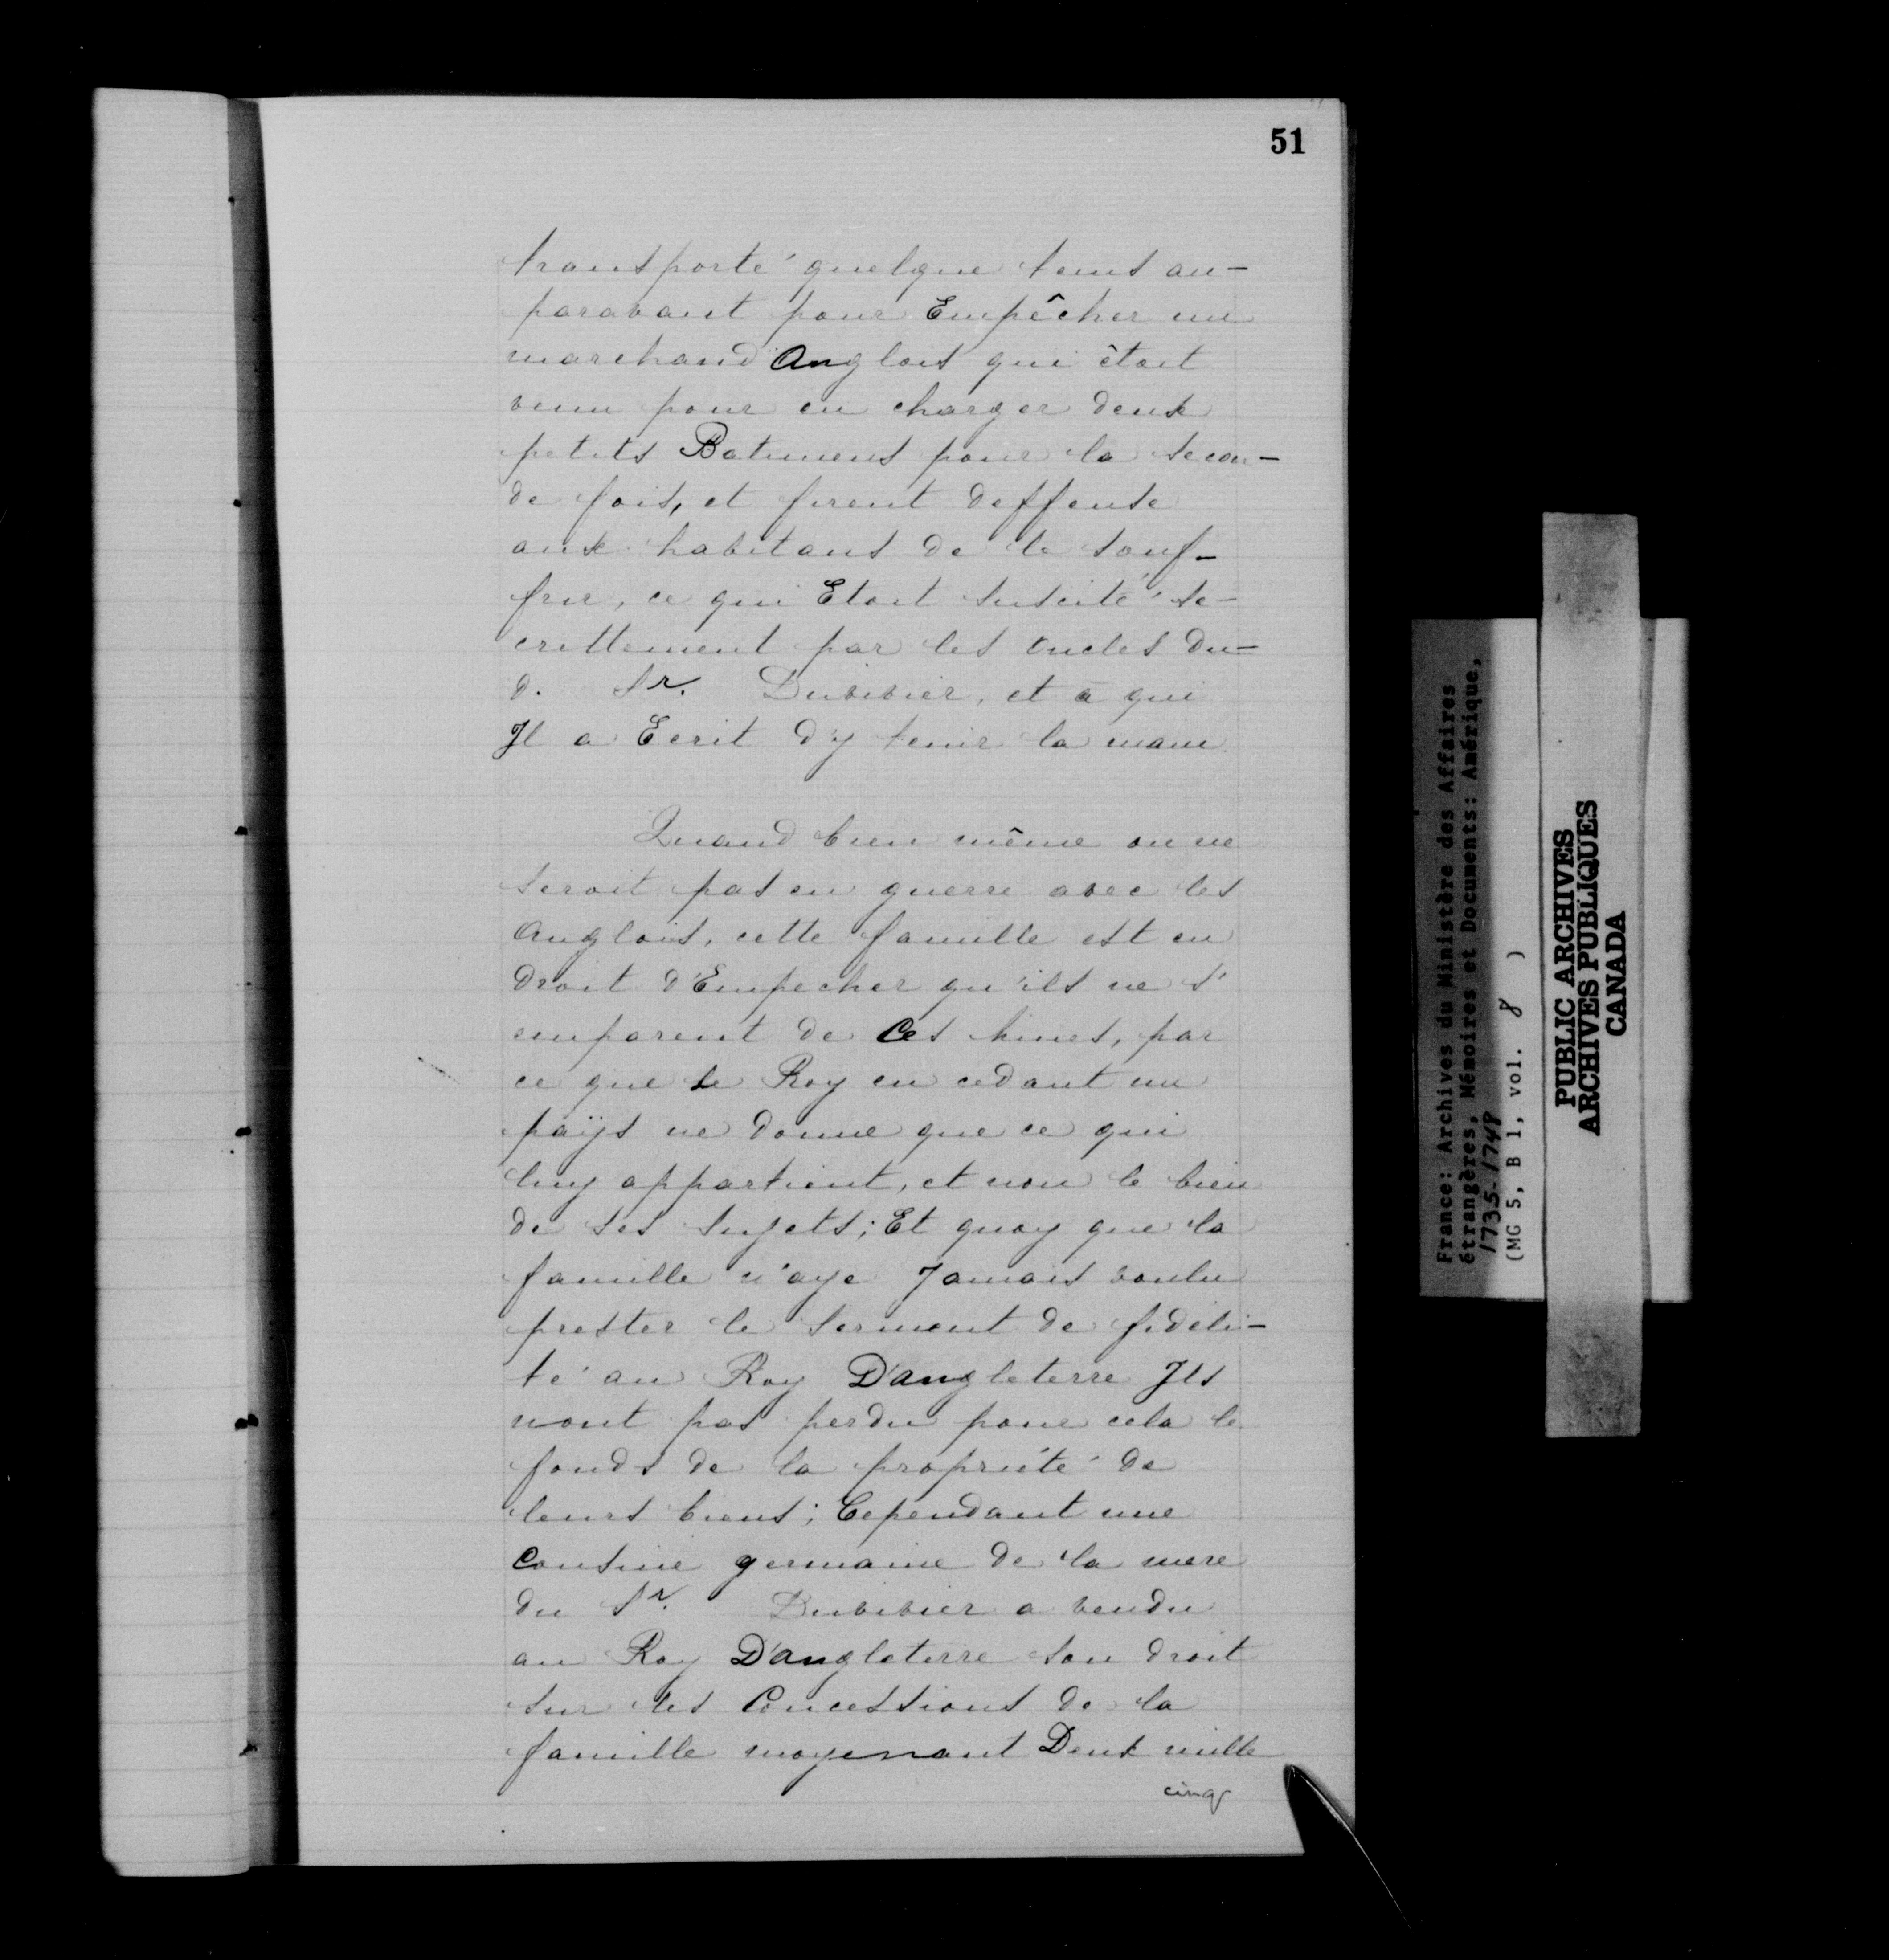 51
transporté quelque tems au-
paravant pour Empêcher un
marchand Anglois qui êtoit
venu pour en charger deux
petits Batimens pour la secon-
de fois, et firent deffense
aux habitans de le souf-
frir, ce qui Etoit suscité se-
crettement par les oncles du-
d. Sr. Duvivier, et à qui
Il a Ecrit d'y tenir la main.
Quand bien même on ne
seroit pas en guerre avec les
Anglois, cette famille est en
droit d'Empecher qu'ils ne s'
emparent de Ces mines, par
ce que le Roy en cedant un
païs ne donne que ce qui
luy appartient, et non le bien
de ses sujets; Et quoy que la
famille n'aye Jamais voulu
prester le serment de fideli-
té au Roy D'angleterre Ils
nont pas perdu pour cela le
fonds de la propriété de
leurs biens; Cependant une
Cousine germaine de la mere
du Sr. Duvivier a vendu
au Roy D'angleterre son droit
sur les Concessions de la
famille moyenant Deux mille
cinq
France: Archives du Ministère des Affaires
étrangères, Mémoires et Documents: Amérique,
1735-1748
(MG 5, B 1, vol. 8 )
PUBLIC ARCHIVES
ARCHIVES PUBLIQUES
CANADA